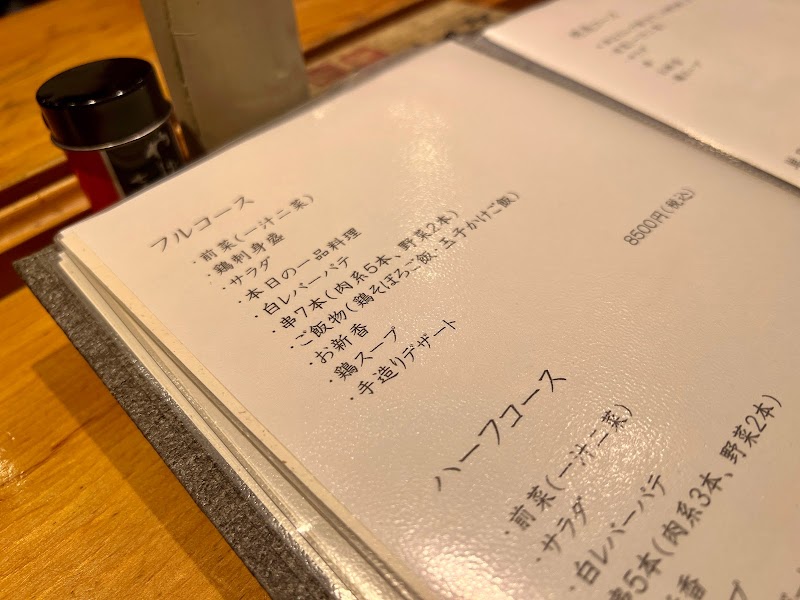 フルコース
・前菜(一汁二菜)
・鶏刺身盛
・サラダ
・本日の一品料理
・白レバーパテ
・串7本(肉系5本、野菜2本)
・ご飯物(鶏そぼろご飯・玉子かけご飯)
・お新香
・鶏スープ
・手造りデザート
8500円(税込)
ハーフコース
・前菜(一汁二菜)
・サラダ
・白レバーパテ
串5本(肉系3本、野菜2本)
香